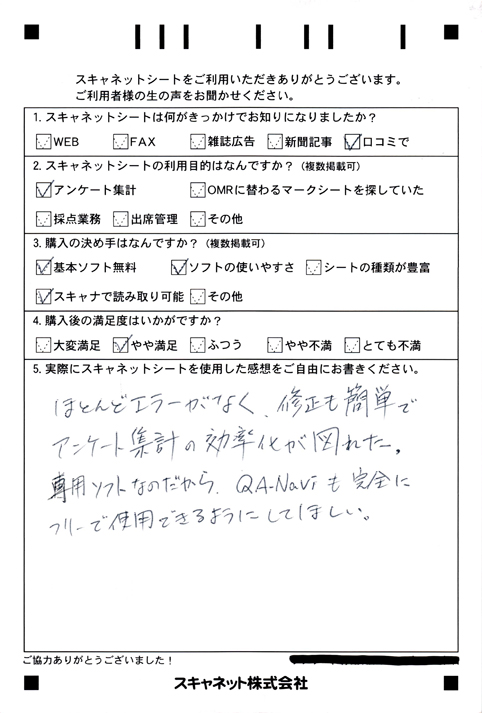 スキャネットシートをご利用いただきありがとうございます。
ご利用者様の生の声をお聞かせください。
1. スキャネットシートは何がきっかけでお知りになりましたか？
WEB FAX 雑誌広告 新聞記事 口コミで
2. スキャネットシートの利用目的はなんですか？（複数掲載可）
アンケート集計 OMRに替わるマークシートを探していた
採点業務 出席管理 その他
3. 購入の決め手はなんですか？（複数掲載可）
基本ソフト無料 ソフトの使いやすさ シートの種類が豊富
スキャナで読み取り可能 その他
4. 購入後の満足度はいかがですか？
大変満足 やや満足 ふつう やや不満 とても不満
5. 実際にスキャネットシートを使用した感想をご自由にお書きください。
ほとんどエラーがなく、修正も簡単で
アンケート集計の効率化が図れた。
専用ソフトなのだから、QA-Naviも完全に
フリーで使用できるようにしてほしい。
ご協力ありがとうございました！
スキャネット株式会社